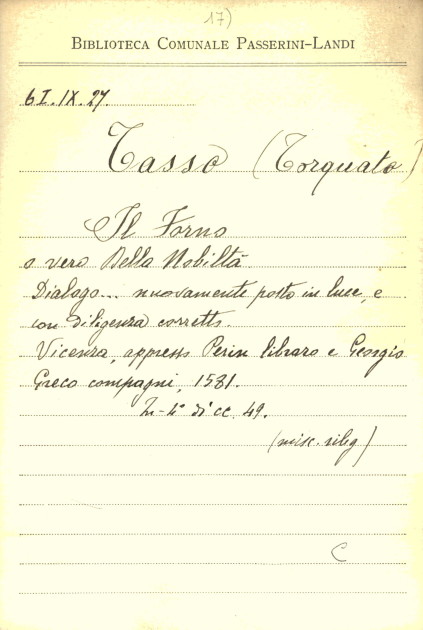 17)
BIBLIOTECA COMUNALE PASSERINI-LANDI
6I.IX.27.
Tasso (Torquato)
Il Forno
o vero Della Nobiltà
Dialogo... nuovamente posto in luce, e
con diligenza corretto.
Vicenza, appresso Perin libraro e Georgio
Greco compagni, 1581.
In-4° di cc. 49.
(misc. rileg)
C